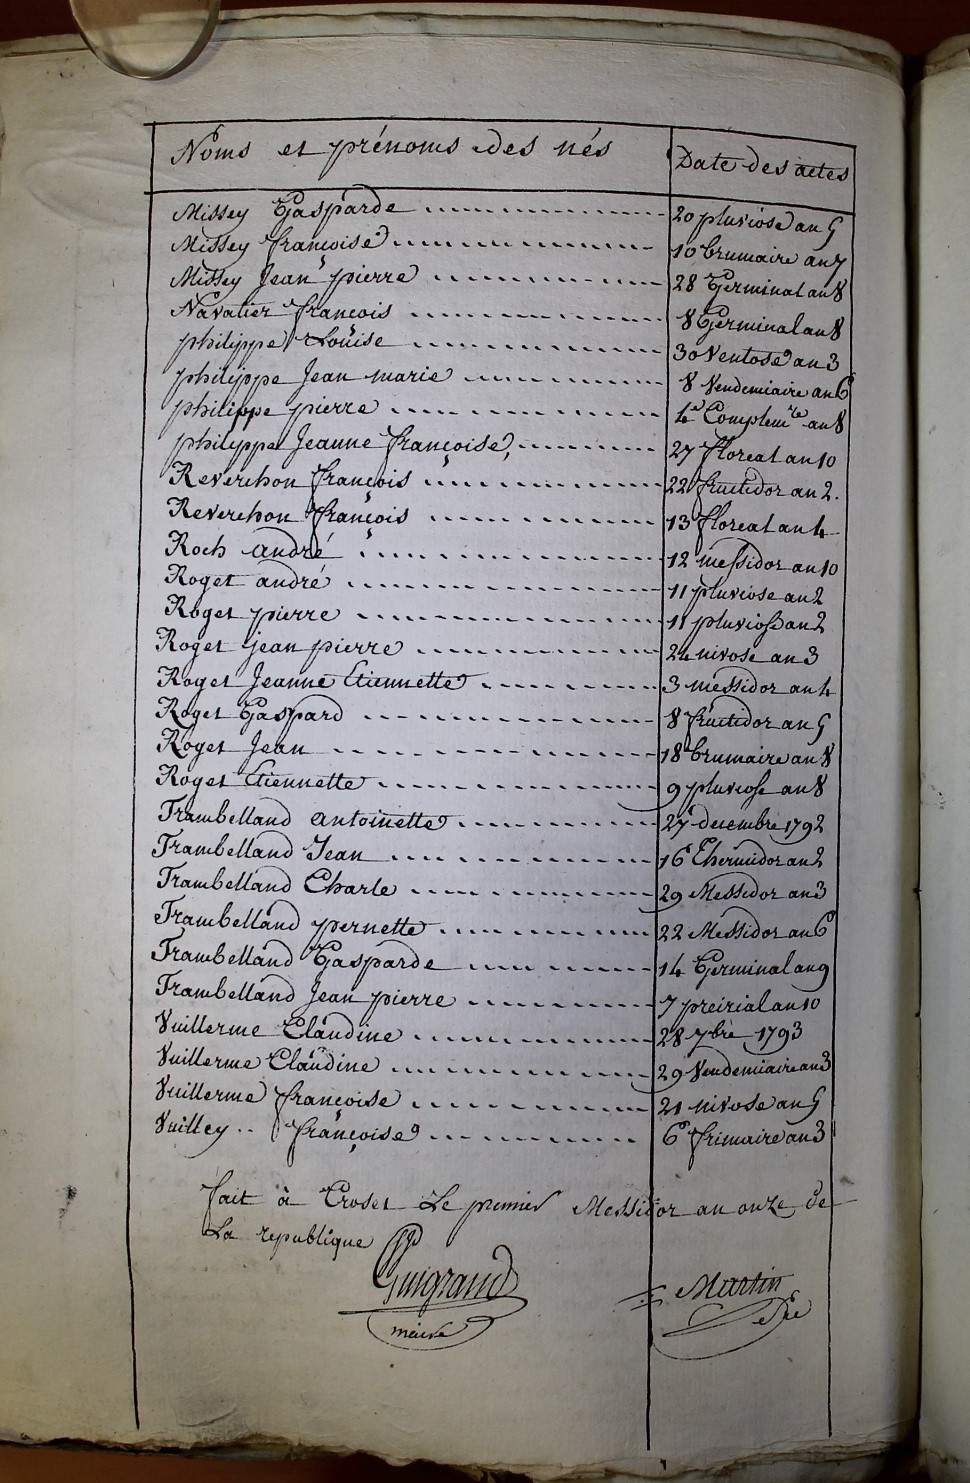 Noms et prénoms des nés Date des actes
Missey Gasparde 20 pluviose an 5
Missey françoise 10 brumaire an 7
Missey Jean pierre 28 Germinal an 8
Navatier françois 8 Germinal an 8
philippe Louise 30 Ventose an 3
philippe Jean marie 8 Vendemiaire an 6
philippe pierre 4e Complemre an 8
philippe Jeanne françoise, 27 floreal an 10
Reverchon françois 22 fructidor an 2.
Reverchon françois 13 floreal an 4
Roch andré 12 messidor an 10
Roget andré 11 pluviose an 2
Roget pierre 11 pluviose an 2
Roget jean pierre 24 nivose an 3
Roget Jeanne Etiennette 3 messidor an 4
Roget Gaspard 8 fructidor an 5
Roget Jean 18 brumaire an 8
Roget Etiennette 9 pluviose an 8
Trambelland antoinette 27 decembre 1792
Trambelland Jean 16 thermidor an 2
Trambelland Charle 29 Messidor an 3
Trambelland pernette 22 Messidor an 6
Trambelland Gasparde 14 Germinal an 9
Trambelland Jean pierre 7 preirial an 10
Vuillerme Claudine 28 7bre 1793
Vuillerme Claudine 29 Vendemiaire an 3
Vuillerme françoise 21 nivose an 5
Vuilley françoise 6 frimaire an 3
fait à Croset Le premier Messidor an onze de
La republique
Guigrand Martin
maire